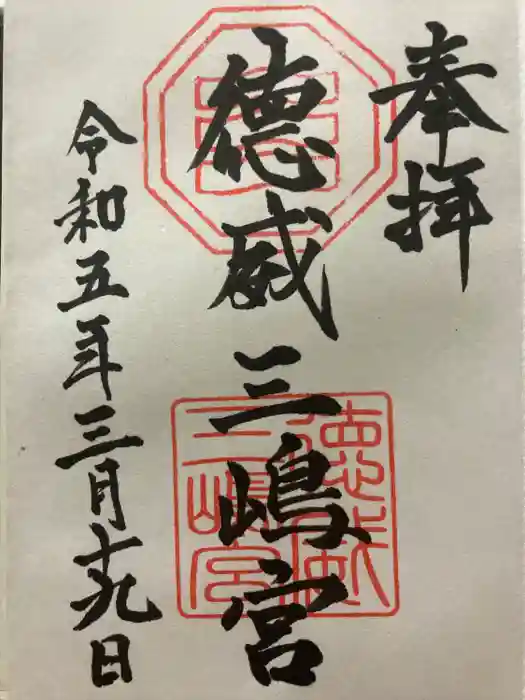 奉拝
德威三嶋宮
令和五年三月十九日
德威
三嶋宮